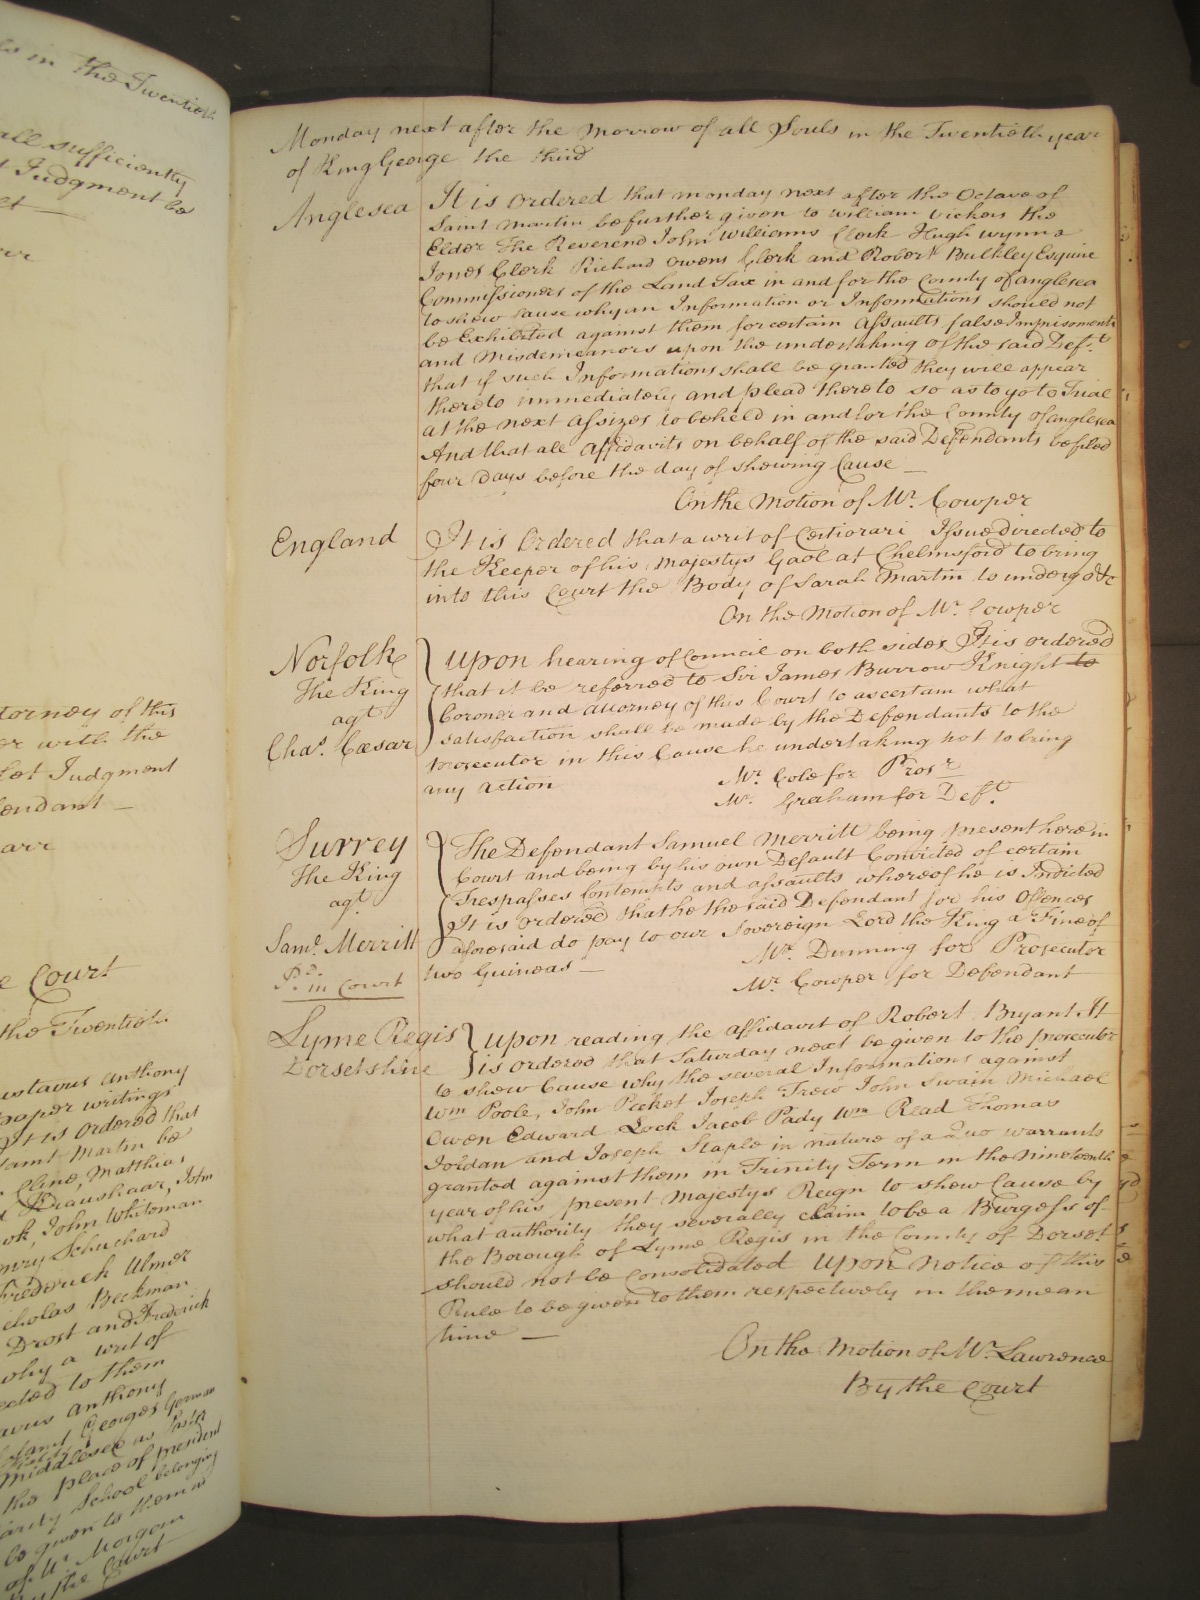 s in the Twentieth
all sufficiently
Judgment be
torney of this
er with the
let Judgment
fendant —
arr
e Court
the Twentieth
ustavus Anthony
paper writings
It is ordered that
Saint Martin be
Cline, Matthias
Kraushaar, John
ok, John Whiteman
enry Schuchard
Frederick Ulmer
cholas Beckman
Drost and Frederick
why a writ of
ected to them
avus Anthony
and Georges German
Middlesex as Pastor
the place of President
arity School belonging
be given to them in
of Mr. Morgan
By the Court
Monday next after the Morrow of all Souls in the Twentieth year
of King George the third
Anglesea
It is ordered that monday next after the Octave of
Saint Martin be further given to William Vickers the
Elder The Reverend John Williams Clerk Hugh Wynne
Jones Clerk Richard Owens Clerk and Robert Bulkley Esquire
Commissioners of the Land Tax in and for the County of Anglesea
to shew cause why an Information or Informations should not
be Exhibited against them for certain Assaults false Imprisonments
and Misdemeanors upon the undertaking of the said Defts.
that if such Informations shall be granted they will appear
thereto immediately and plead thereto so as to go to Trial
at the next Assizes to be held in and for the County of Anglesea
And that all Affidavits on behalf of the said Defendants be filed
four Days before the day of shewing Cause —
On the Motion of Mr. Cowper
England
It is Ordered that a writ of Certiorari Issue directed to
the Keeper of his Majestys Gaol at Chelmsford to bring
into this Court the Body of Sarah Martin to undergo &c
On the Motion of Mr. Cowper
Norfolk
The King
agt.
Chas. Cæsar
Upon hearing of Council on both sides It is ordered
that it be referred to Sir James Burrow Knight to
Coroner and Attorney of this Court to ascertain what
satisfaction shall be made by the Defendants to the
prosecutor in this Cause he undertaking not to bring
any action
Mr. Cole for Prosr.
Mr. Graham for Deft.
Surrey
The King
agt.
Saml. Merritt
Pd. in Court
The Defendant Samuel Merritt being present here in
Court and being by his own Default Convicted of certain
Trespasses Contempts and assaults whereof he is Indicted
It is ordered that he the said Defendant for his Offences
aforesaid do pay to our Sovereign Lord the King a Fine of
two Guineas —
Mr. Dunning for Prosecutor
Mr. Cowper for Defendant
Lyme Regis
Dorsetshire
Upon reading the affidavit of Robert Bryant It
is ordered that Saturday next be given to the prosecutor
to shew Cause why the several Informations against
Wm Poole, John Picket Joseph Trew John Swain Michael
Owen Edward Lock Jacob Pady Wm Read Thomas
Jordan and Joseph Staple in nature of a Quo Warranto
granted against them in Trinity Term in the Nineteenth
year of his present Majestys Reign to shew Cause by
what authority they severally claim to be a Burgess of
the Borough of Lyme Regis in the County of Dorset
should not be Consolidated Upon Notice of this
Rule to be given to them respectively in the mean
time —
On the Motion of Mr. Lawrence
By the Court